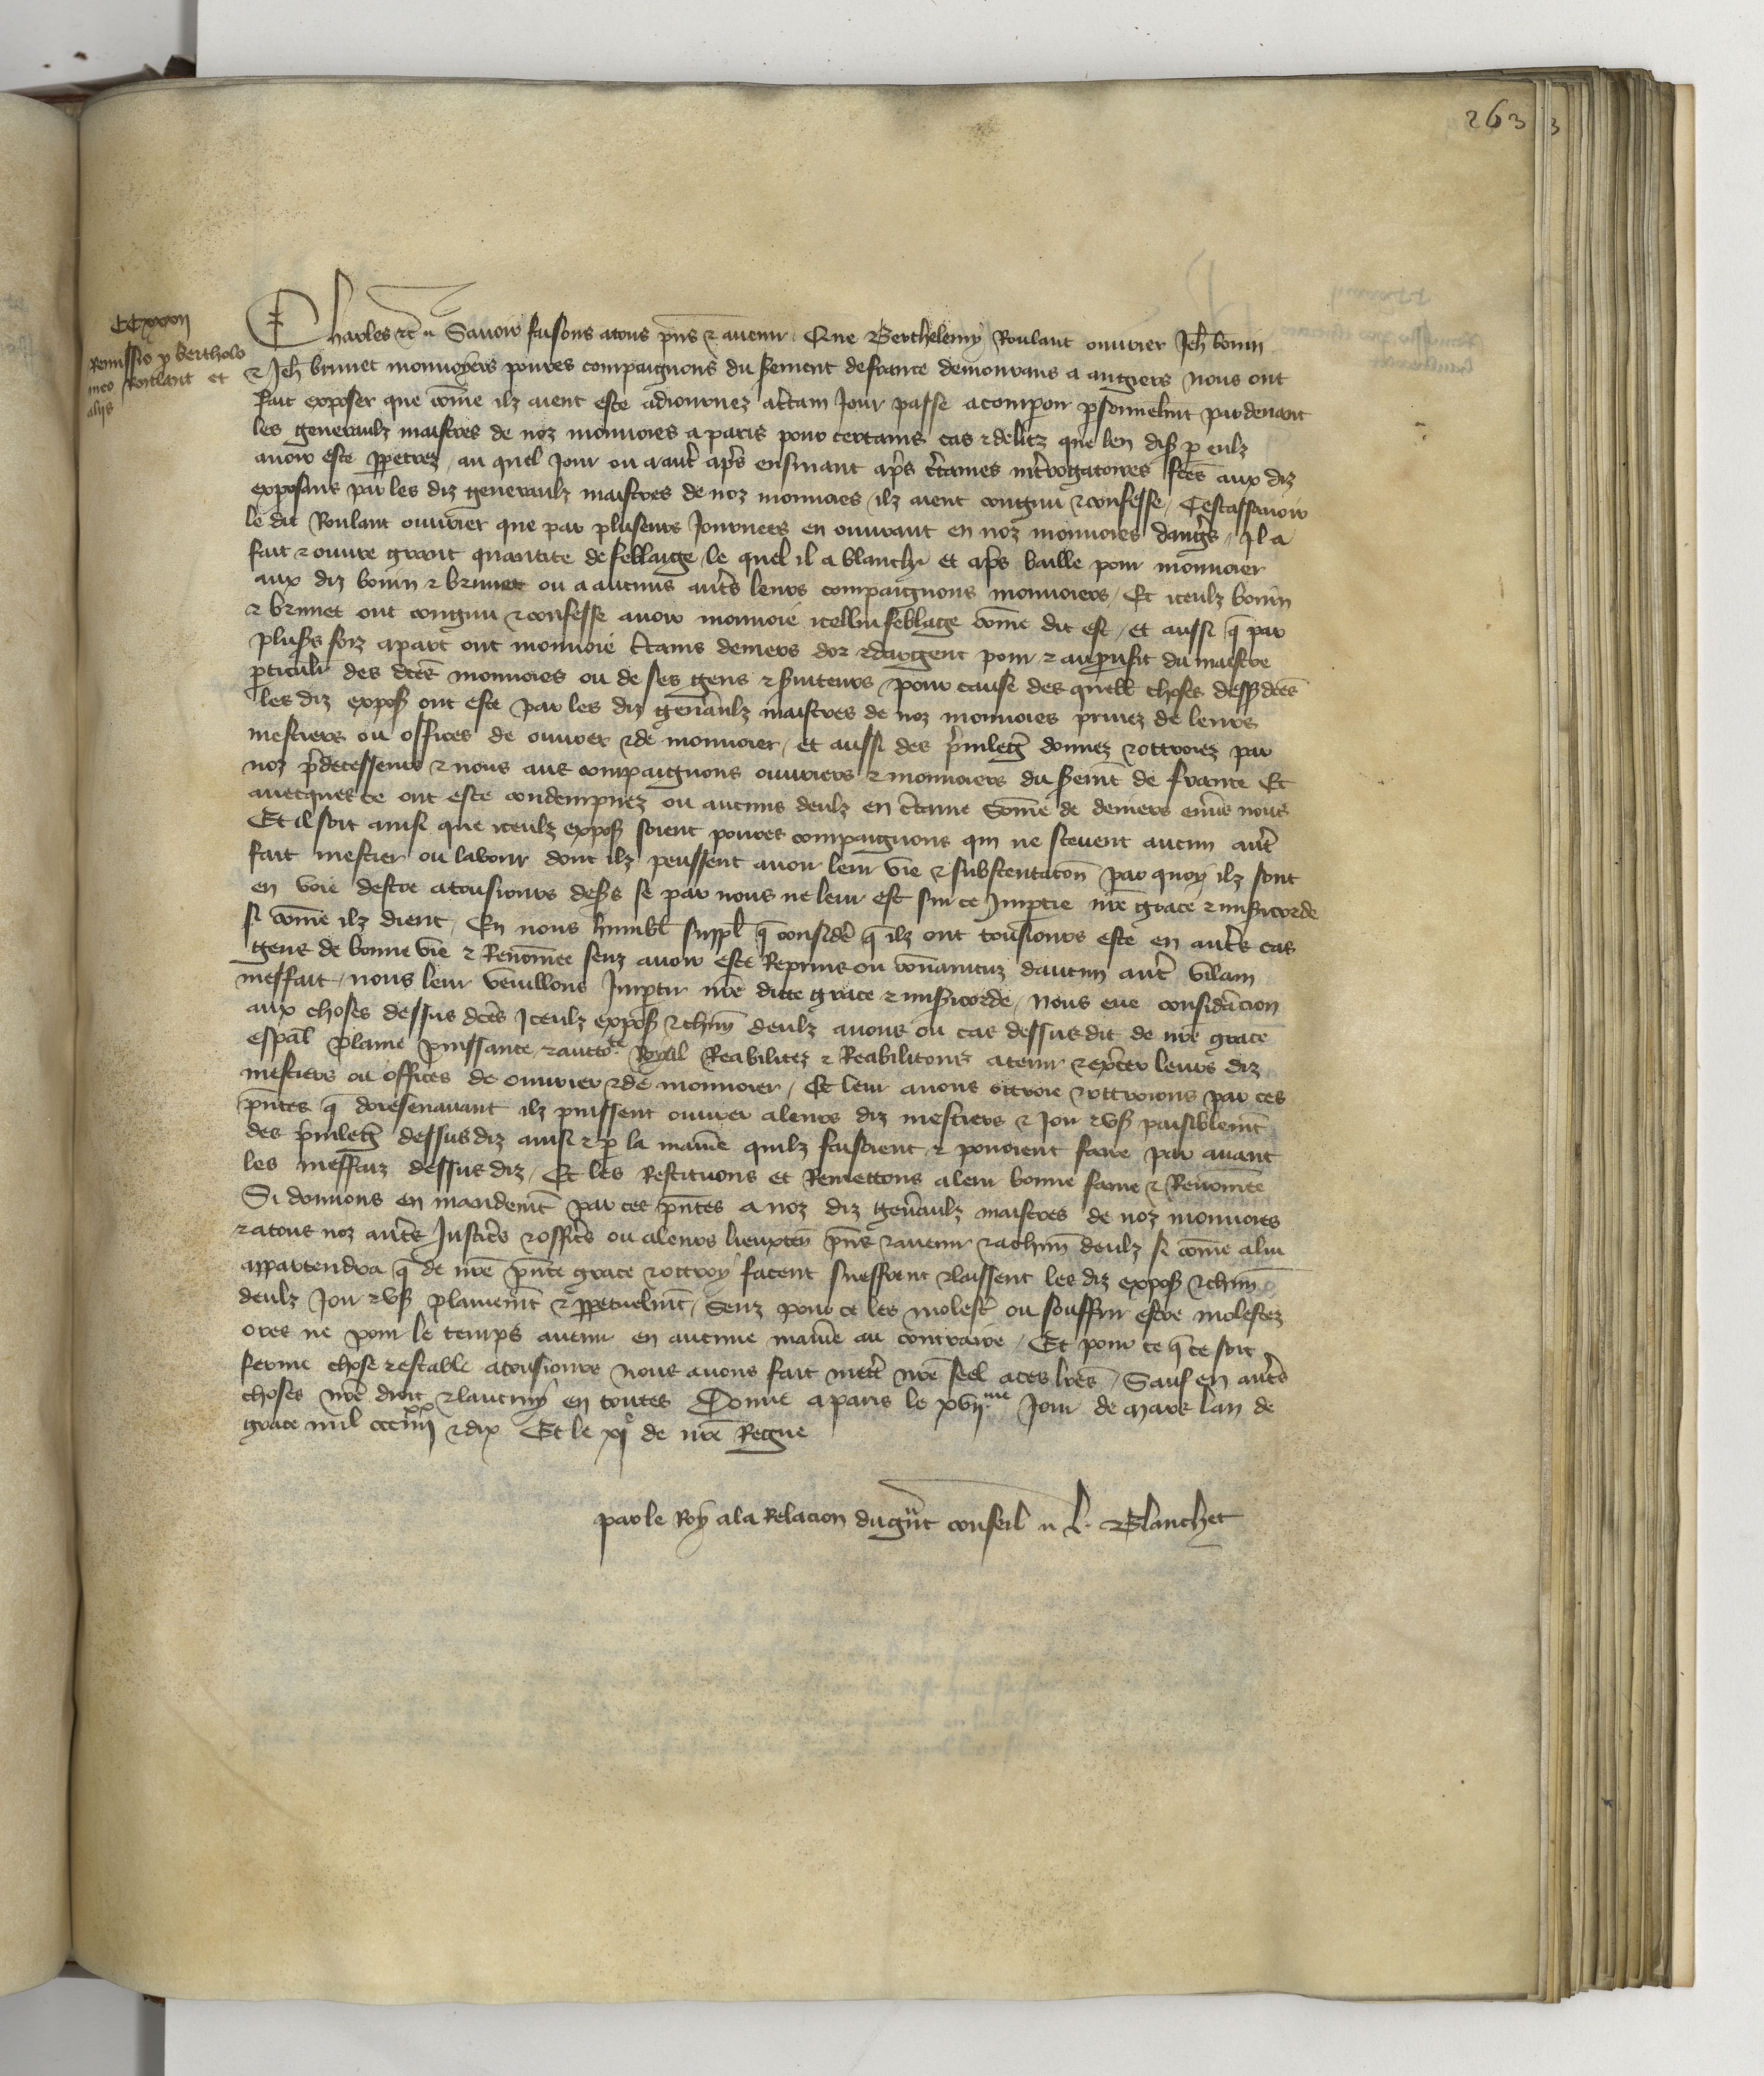 263
3
CCxxvii
Remissio p bertholo
meo Rontlant et
alijs
Charles etc. Savoir faisons atous pns & avenir Que Berthelemy Roulant ouvrier Jeh bonin
& Jeh brunet monnoyers povres compaignons du serement de france demourans a angiers nous ont
fait exposer que come ilz aient este adiournez a ctain Jour passe a comparoir psonnelmt par devant
les generaulx maistres de noz monnoies a paris pour certains cas & deliz que len dis p eulz
avoir este ppetrez au quel Jour ou a aut aps ensuivant aps ctaines introgatoires fces aux diz
exposans par les diz generaulx maistres de noz monnoies ilz aient congnu & confesse Cestassavoir
le dit Roulant ouvrier que par pluseurs Journees en ouvrant en noz monnoies dangs Il a
fait & ouvre grant quantite de feblaige le quel il a blanchi et aps baille pour monnoier
aux diz bonin & brunet ou a aucuns auts leurs compaignons monnoiers Et iceulz bonin
& brunet ont congnu & confesse avoir monnoie icellui feblage come dit est Et aussi q par
plus foiz apart ont monnoie ctains deniers dor & dargent pour & au proufit du maistre
pticuler des dces monnoies ou de ses gens & sviteurs pour cause des quell choses dessdces
les diz expos ont este par les diz genaulz maistres de noz monnoies privez de leurs
mestiers ou offices de ouvrer & de monnoier et aussi des privileg donnez & ottroiez par
noz pdecesseurs & nous aus compaignons ouvriers & monnoiers du semt de france Et
avecques ce ont este condempnez ou aucuns deulz en ctaine Some de deniers envs nous
Et il soit ainsi que iceulz expos soient povres compaignons qui ne scevent aucun aut
fait mestier ou labour dont ilz peussent avoir leur vie & substentacon par quoy ilz sont
en voie destre atousiours dess se par nous ne leur est sur ce Impartie nre grace & misicorde
si come ilz dient En nous humbl suppl q conside q ilz ont tousiours este en auts cas
gens de bonne vie & Renomee senz avoir este Reprins ou convaincuz daucun aut vilain
meffait nous leur veuillons Impartir nre dicte grace & misicorde Nous eue considacion
aux choses dessus dces Iceulz expos & chun deulz avons ou cas dessus dit de nre grace
espal plaine puissance & auctote Royal Reabilitez & Reabilitons atenir & excer leurs diz
mestiers ou offices de ouvrier & de monnoier Et leur avons ottroie & ottroions par ces
pntes q doresenavant ilz puissent ouvrer aleurs diz mestiers & Joir & us paisiblemt
des privileg dessusdiz ainsi & p la manie quilz faisoient & povoient faire par avant
les meffaiz dessus diz Et les Restituons et Remettons aleur bonne fame & Renomee
Si donnons en mandemt par ces pntes a noz diz genaulz maistres de noz monnoies
& atous noz auts Justics & offics ou aleurs lieuxten pns & avenir & achun deulz si come alui
appartendra q de nre pnte grace & ottroy facent sueffrent & laissent les diz expos & chun
deulz Joir & us plainemt & ppetuelmt Senz pour ce les molest ou souffrir estre molestez
ores ne pour le temps avenir en aucune manie au contraire Et pour ce q ce soit
ferme chose & estable atousiours nous avons fait mett nre seel aces lres Sauf en auts
choses nre droit & lautruy en toutes Donne a paris le xvij.me Jour de mars lan de
grace mil ccciiijxx & dix Et le xjo de nre Regne
par le Roy ala Relacion du gnt conseil L. Blanchet